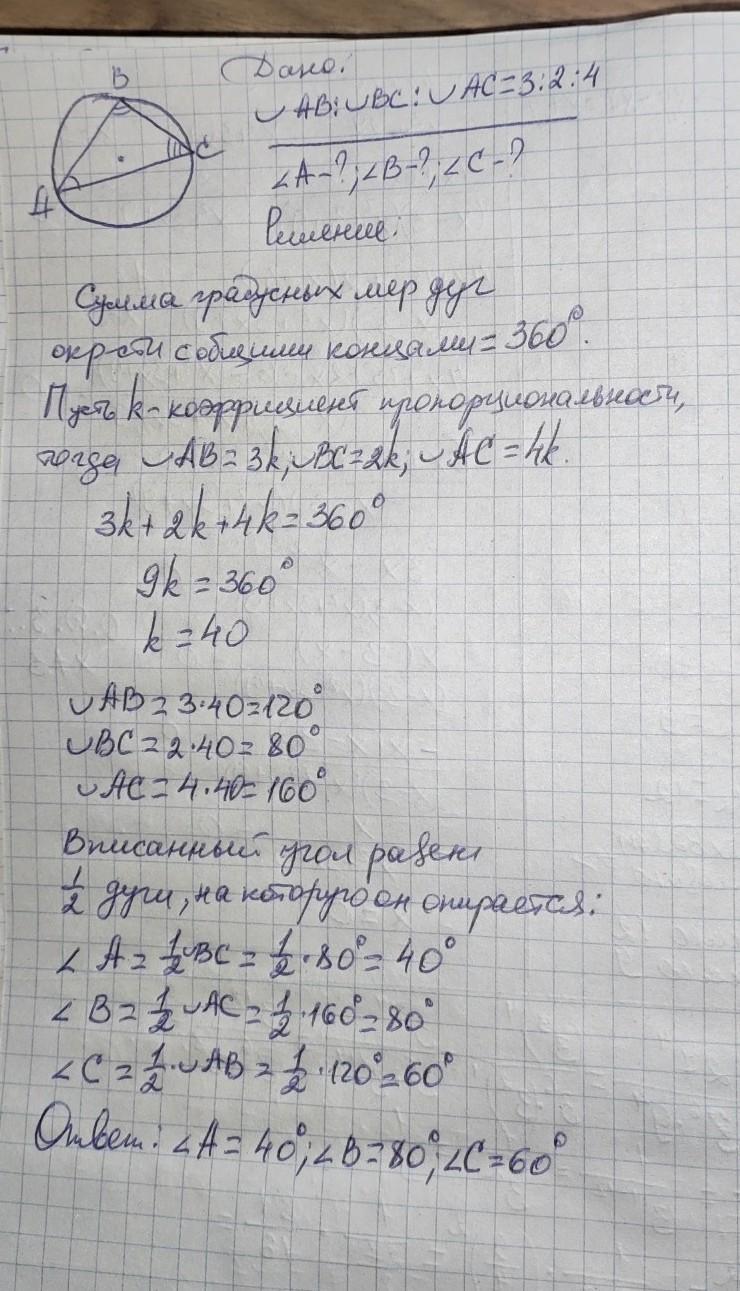 B
C
A
Дано:
◡AB:◡BC:◡AC=3:2:4
∠A-?;∠B-?;∠C-?
Решение:
Сумма градусных мер дуг
окр-сти с общими концами=360°.
Пусть k-коэффициент пропорциональности,
тогда ◡AB=3k;◡BC=2k;◡AC=4k.
3k+2k+4k=360°
9k=360°
k=40
◡AB=3·40=120°
◡BC=2·40=80°
◡AC=4·40=160°
Вписанный угол равен
1/2 дуги, на которую он опирается:
∠A=1/2◡BC=1/2·80°=40°
∠B=1/2◡AC=1/2·160°=80°
∠C=1/2·◡AB=1/2·120°=60°
Ответ: ∠A=40°;∠B=80°;∠C=60°